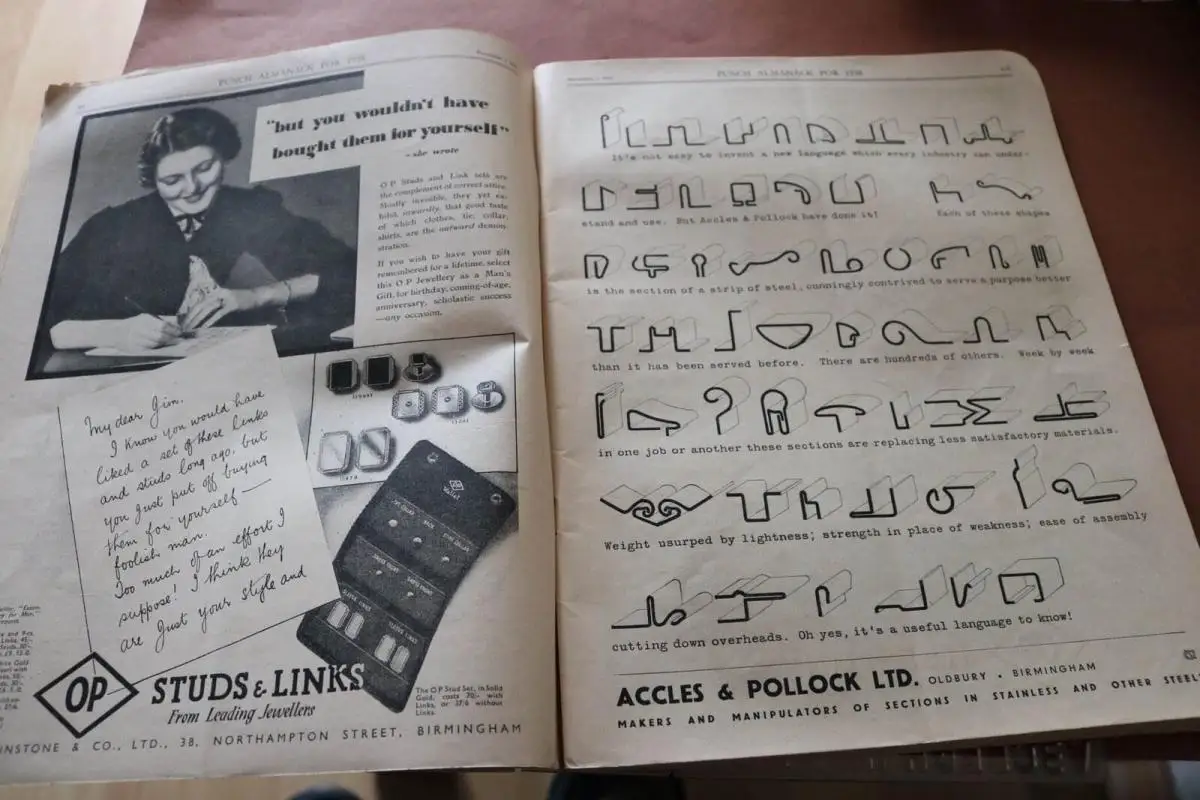 PUNCH ALMANACK FOR 1938
"but you wouldn't have
bought them for yourself"
—she wrote
O P Studs and Link sets are
the complement of correct attire.
Mostly invisible, they yet ex-
hibit inwardly, that good taste
of which clothes, tie, collar,
shirts, are the outward demon-
stration.
If you wish to have your gift
remembered for a lifetime, select
this O P Jewellery as a Man's
Gift, for birthday, coming-of-age,
anniversary, scholastic success
—any occasion.
My dear Jim,
I know you would have
liked a set of these links
and studs long ago, but
you just put off buying
them for yourself —
foolish man.
Too much of an effort I
suppose! I think they
are just your style and
OP
Wallet
STUDS & LINKS
From Leading Jewellers
The O P Stud Set, in Solid
Gold, costs 70/- with
Links, or 37/6 without
Links.
& CO., LTD., 38, NORTHAMPTON STREET, BIRMINGHAM
PUNCH ALMANACK FOR 1938
It's not easy to invent a new language which every industry can under-
stand and use. But Accles & Pollock have done it! Each of these shapes
is the section of a strip of steel, cunningly contrived to serve a purpose better
than it has been served before. There are hundreds of others. Week by week
in one job or another these sections are replacing less satisfactory materials.
Weight usurped by lightness; strength in place of weakness; ease of assembly
cutting down overheads. Oh yes, it's a useful language to know!
ACCLES & POLLOCK LTD. OLDBURY • BIRMINGHAM
MAKERS AND MANIPULATORS OF SECTIONS IN STAINLESS AND OTHER STEELS